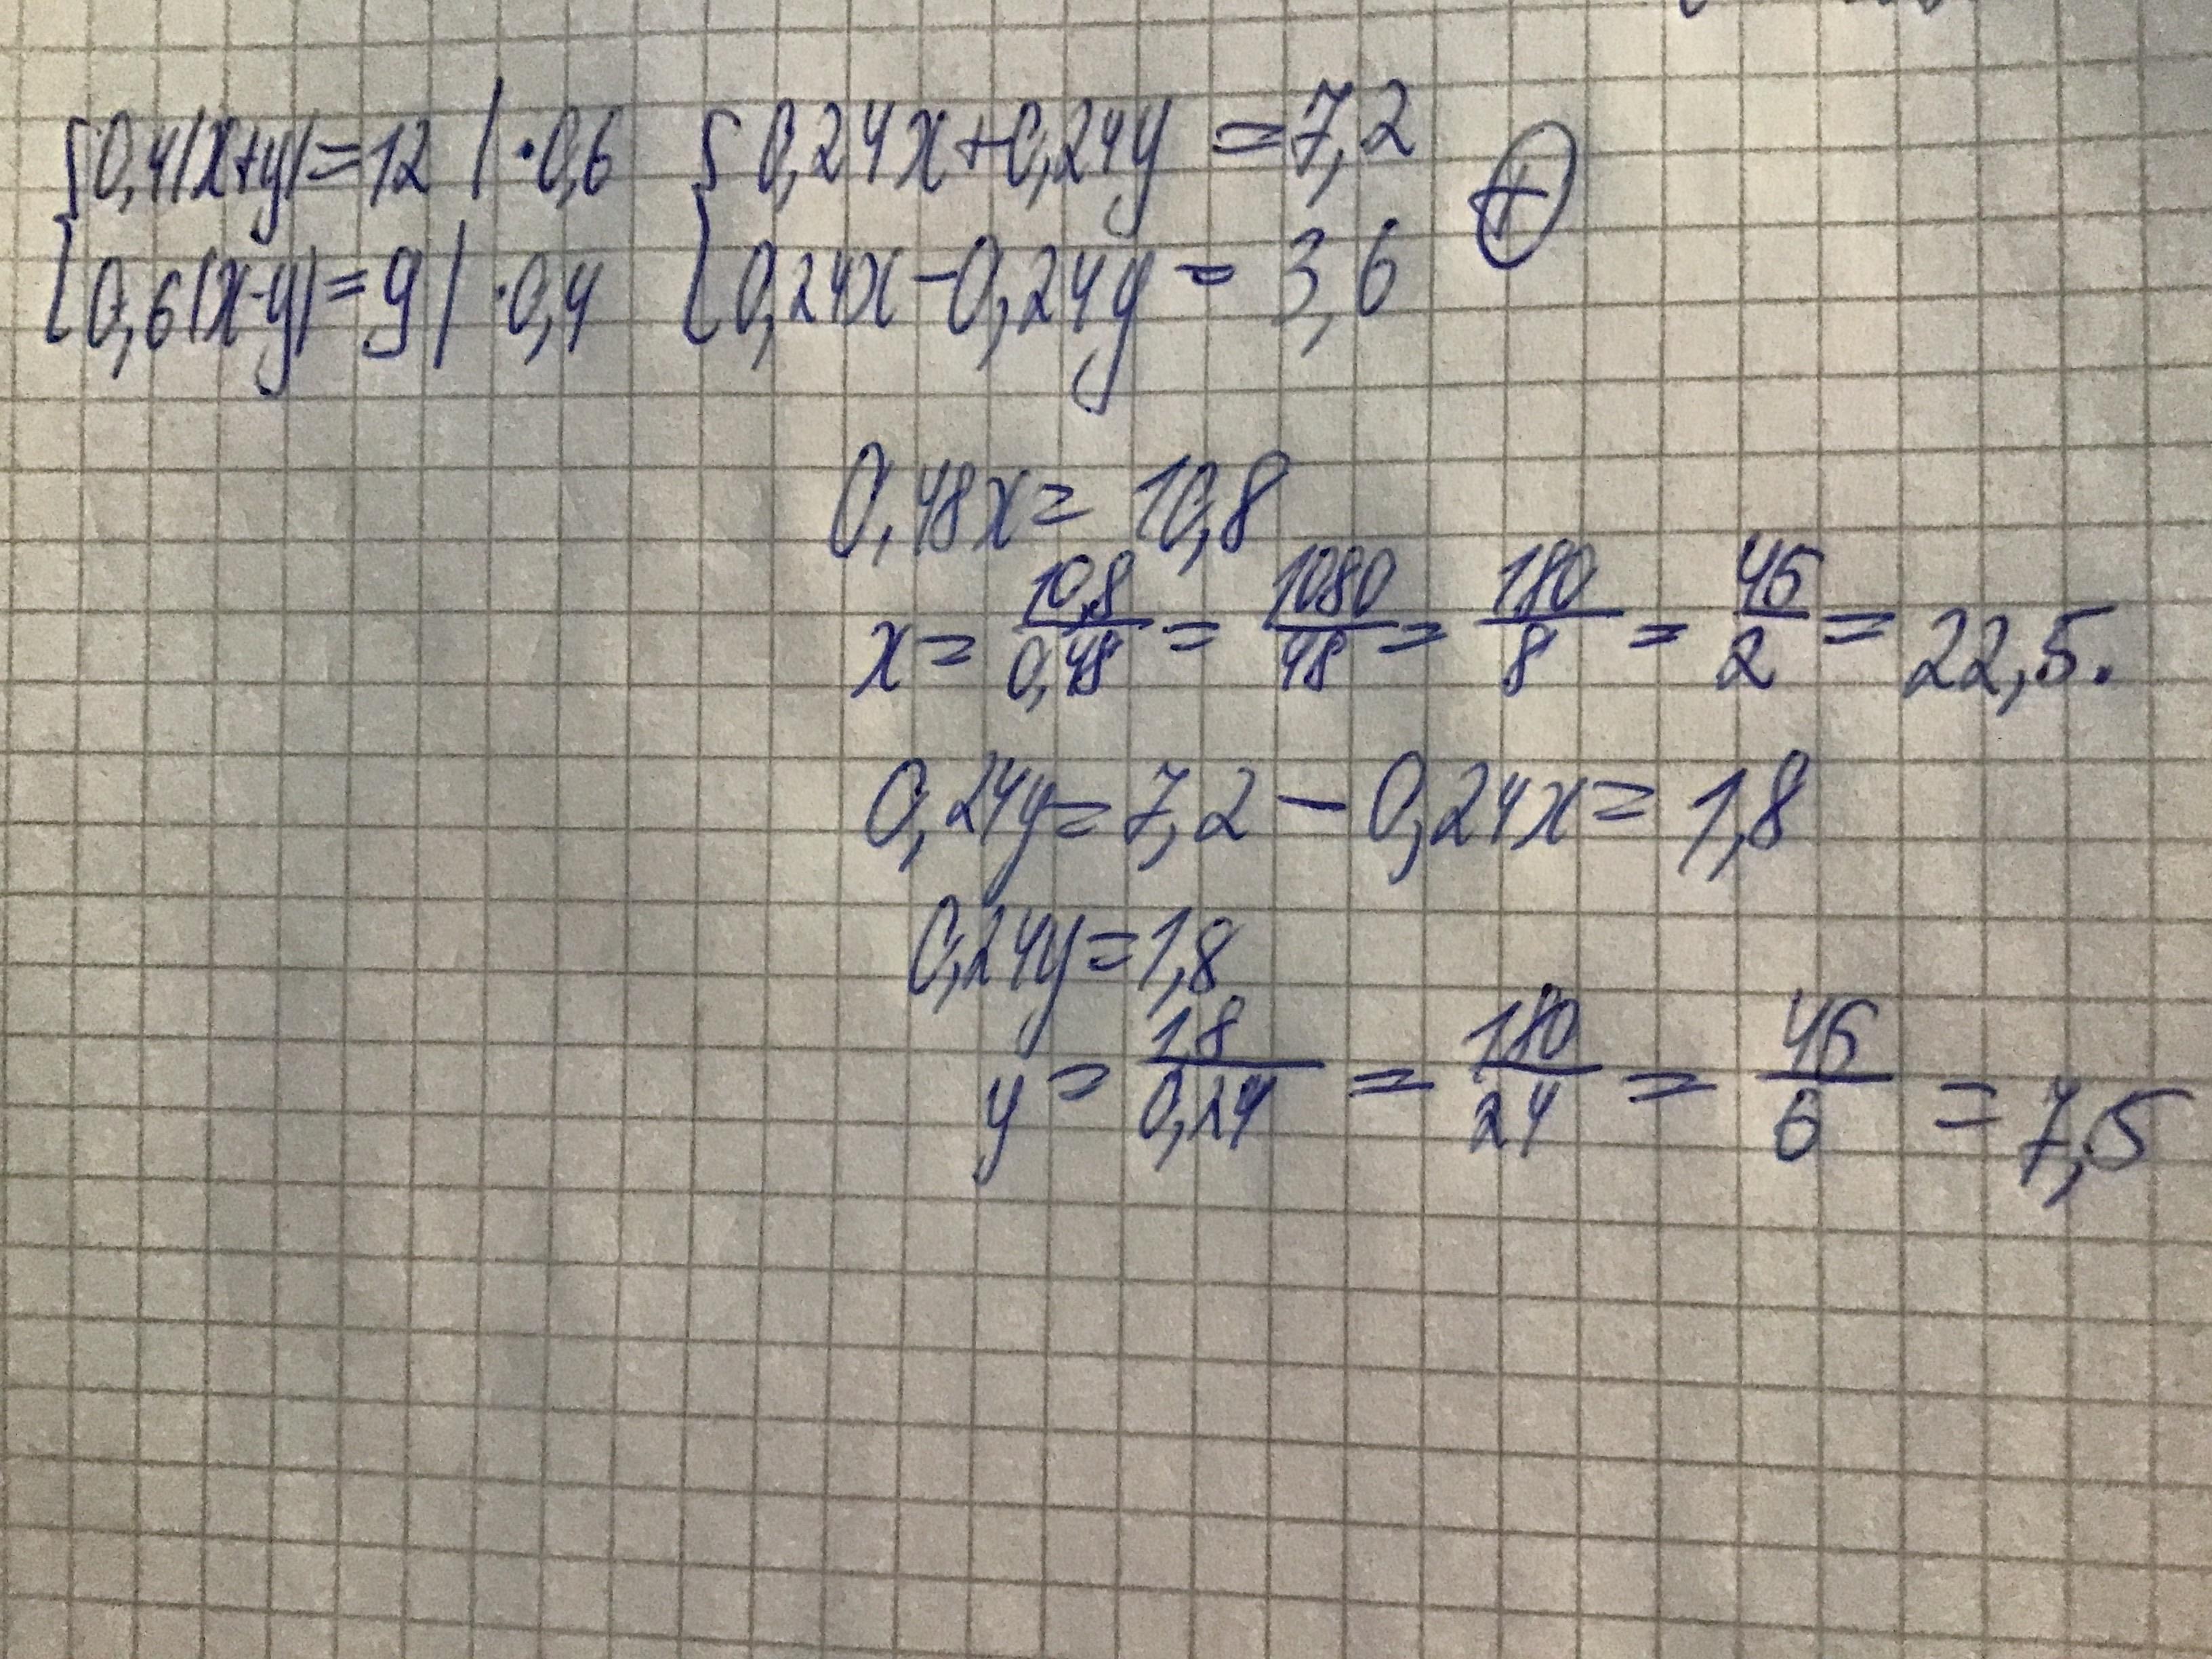 {0,4(x+y)=12 | ·0,6 {0,24x+0,24y = 7,2
{0,6(x-y)=9 | ·0,4 {0,24x-0,24y = 3,6 ⊕
0,48x = 10,8
x = 10,8/0,48 = 1080/48 = 180/8 = 45/2 = 22,5.
0,24y = 7,2 - 0,24x = 1,8
0,24y = 1,8
y = 1,8/0,24 = 180/24 = 45/6 = 7,5